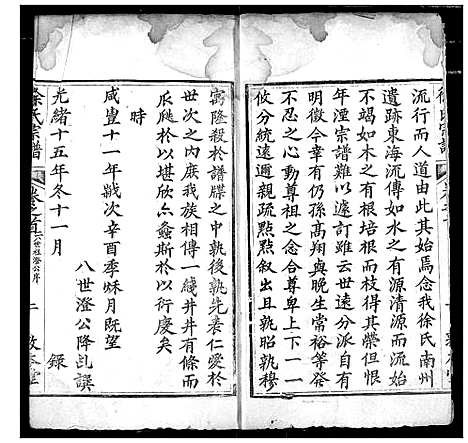 徐氏宗譜
流行而人道由此其始焉念我徐氏南州
遺跡東海沉傳如水之有源清源而流始
不竭如木之有根培根而枝得其榮但恨
年湮宗譜難以遽訂雖云世遠分派自有
明徵今幸有仍孫高翔與晚生常裕等發
不忍之心明一人之倫合尊卑上下一一
攸分統遠邇親疏點點敘出且孰昭孰穆
寄隆殺於譜牒之中孰後孰先袁仁愛於
世次之內庶我族相傳一綫井井有條而
瓜瓞於以堪欣螽斯於以衍慶矣
時
咸豐十一年歲次辛酉季秋月既望
八世澄公降乩譔
光緒十五年冬十一月 錄
徐氏宗譜 卷之首 八世祖澄公序 二 敦本堂